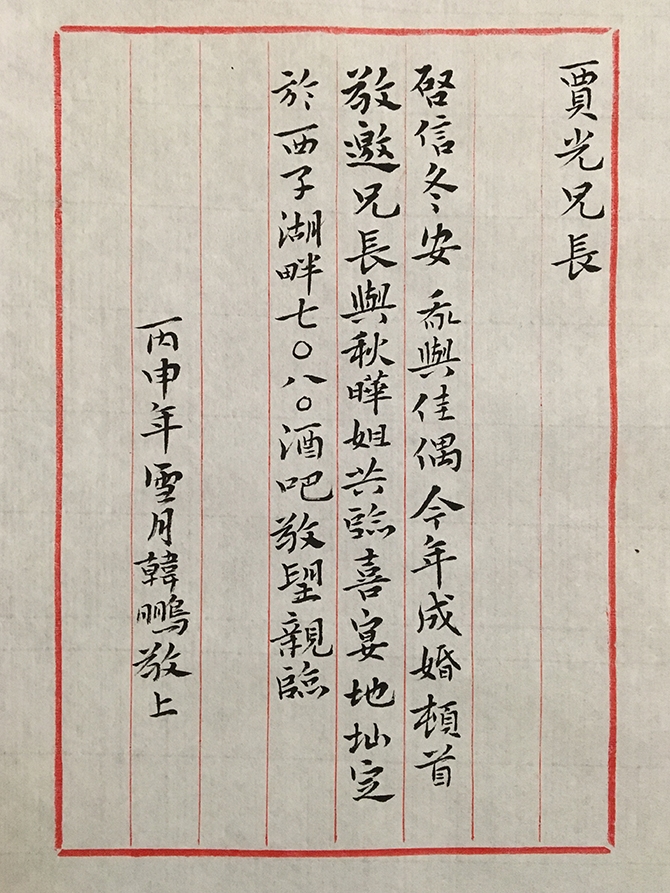 賈光兄長
啓信冬安 我與佳偶今年成婚頓首
敬邀兄長與秋曄姐共臨喜宴地址定
於西子湖畔七〇八〇酒吧敬望親臨
丙申年雪月韓鵬敬上